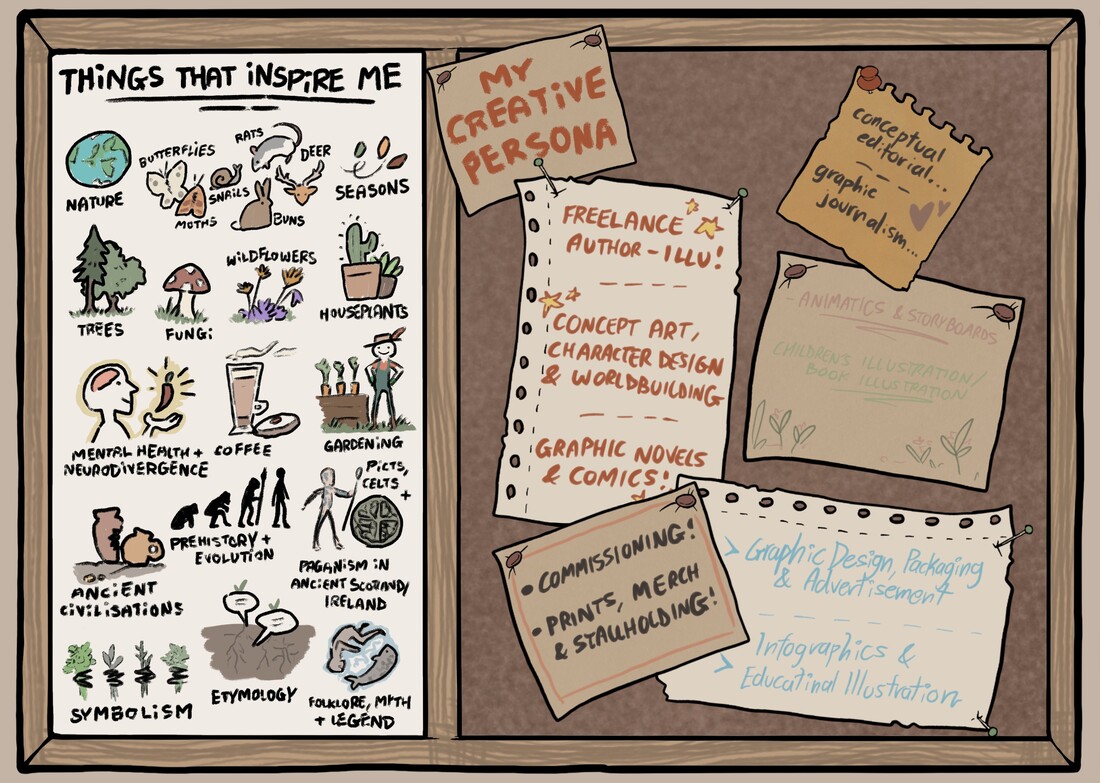 THINGS THAT INSPIRE ME
NATURE
BUTTERFLIES
MOTHS
SNAILS
RATS
DEER
BUNS
SEASONS
TREES
FUNGI
WILDFLOWERS
HOUSEPLANTS
MENTAL HEALTH +
NEURODIVERGENCE
COFFEE
GARDENING
ANCIENT
CIVILISATIONS
PREHISTORY +
EVOLUTION
PICTS,
CELTS +
PAGANISM IN
ANCIENT SCOTLAND/
IRELAND
SYMBOLISM
ETYMOLOGY
FOLKLORE, MYTH
+ LEGEND
MY
CREATIVE
PERSONA
FREELANCE
AUTHOR-ILLU!
CONCEPT ART,
CHARACTER DESIGN
& WORLDBUILDING
GRAPHIC NOVELS
& COMICS!
conceptual
editorial...
graphic
journalism...
- ANIMATICS & STORYBOARDS
CHILDREN'S ILLUSTRATION/
BOOK ILLUSTRATION
• COMMISSIONING!
• PRINTS, MERCH
& STALLHOLDING!
> Graphic Design, Packaging
& Advertisement
> Infographics &
Educatinal Illustration